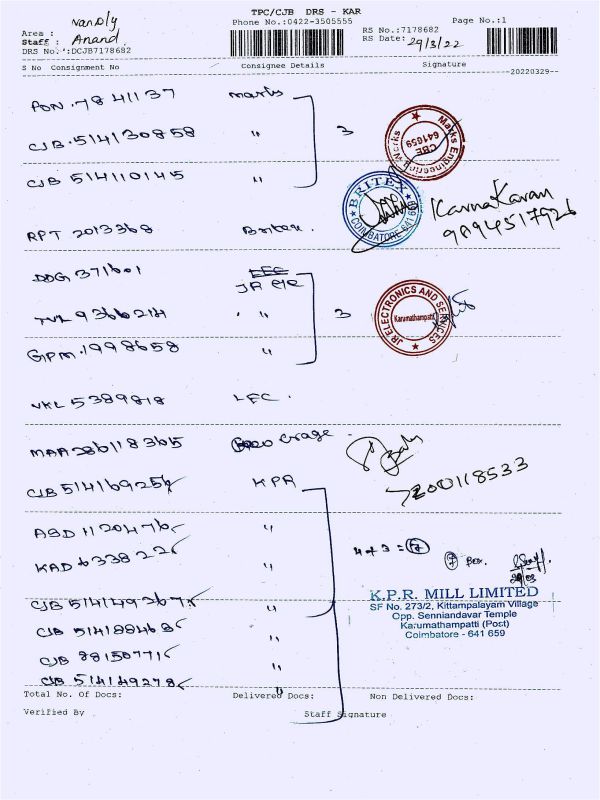 TPC/CJB DRS - KAR
Phone No.:0422-3505555
Page No.:1
Area : Vandly
Staff : Anand
DRS No.:DCJB7178682
RS No.:7178682
RS Date: 29/3/22
S No Consignment No Consignee Details Signature
--20220329--
PON.7841137 Marks
CJB.514130858 "
3
CJB 514110145 "
Marks Engineering Works
CBE
641659
BRITEX
COIMBATORE 641 659
RPT 2013368 Britex.
KarnaKaran
9894517926
DDG 371601
JR ele
TVL 9366214 "
3
GPM.1998658 "
JR ELECTRONICS AND SERVICES
Karumathampatti
VKL 5389818 LFC.
MAA 286118365 crage
7200118533
CJB 514169254 KPR
ASD 1120476 "
KAD 6338226 "
4 of 3 = 7
7 Box.
CJB 514149367 "
CJB 514188468 "
CJB 881507716 "
CJB 514149278 "
K.P.R. MILL LIMITED
SF No. 273/2, Kittampalayam Village
Opp. Senniandavar Temple
Karumathampatti (Post)
Coimbatore - 641 659
Total No. Of Docs: Delivered Docs: Non Delivered Docs:
Verified By Staff Signature